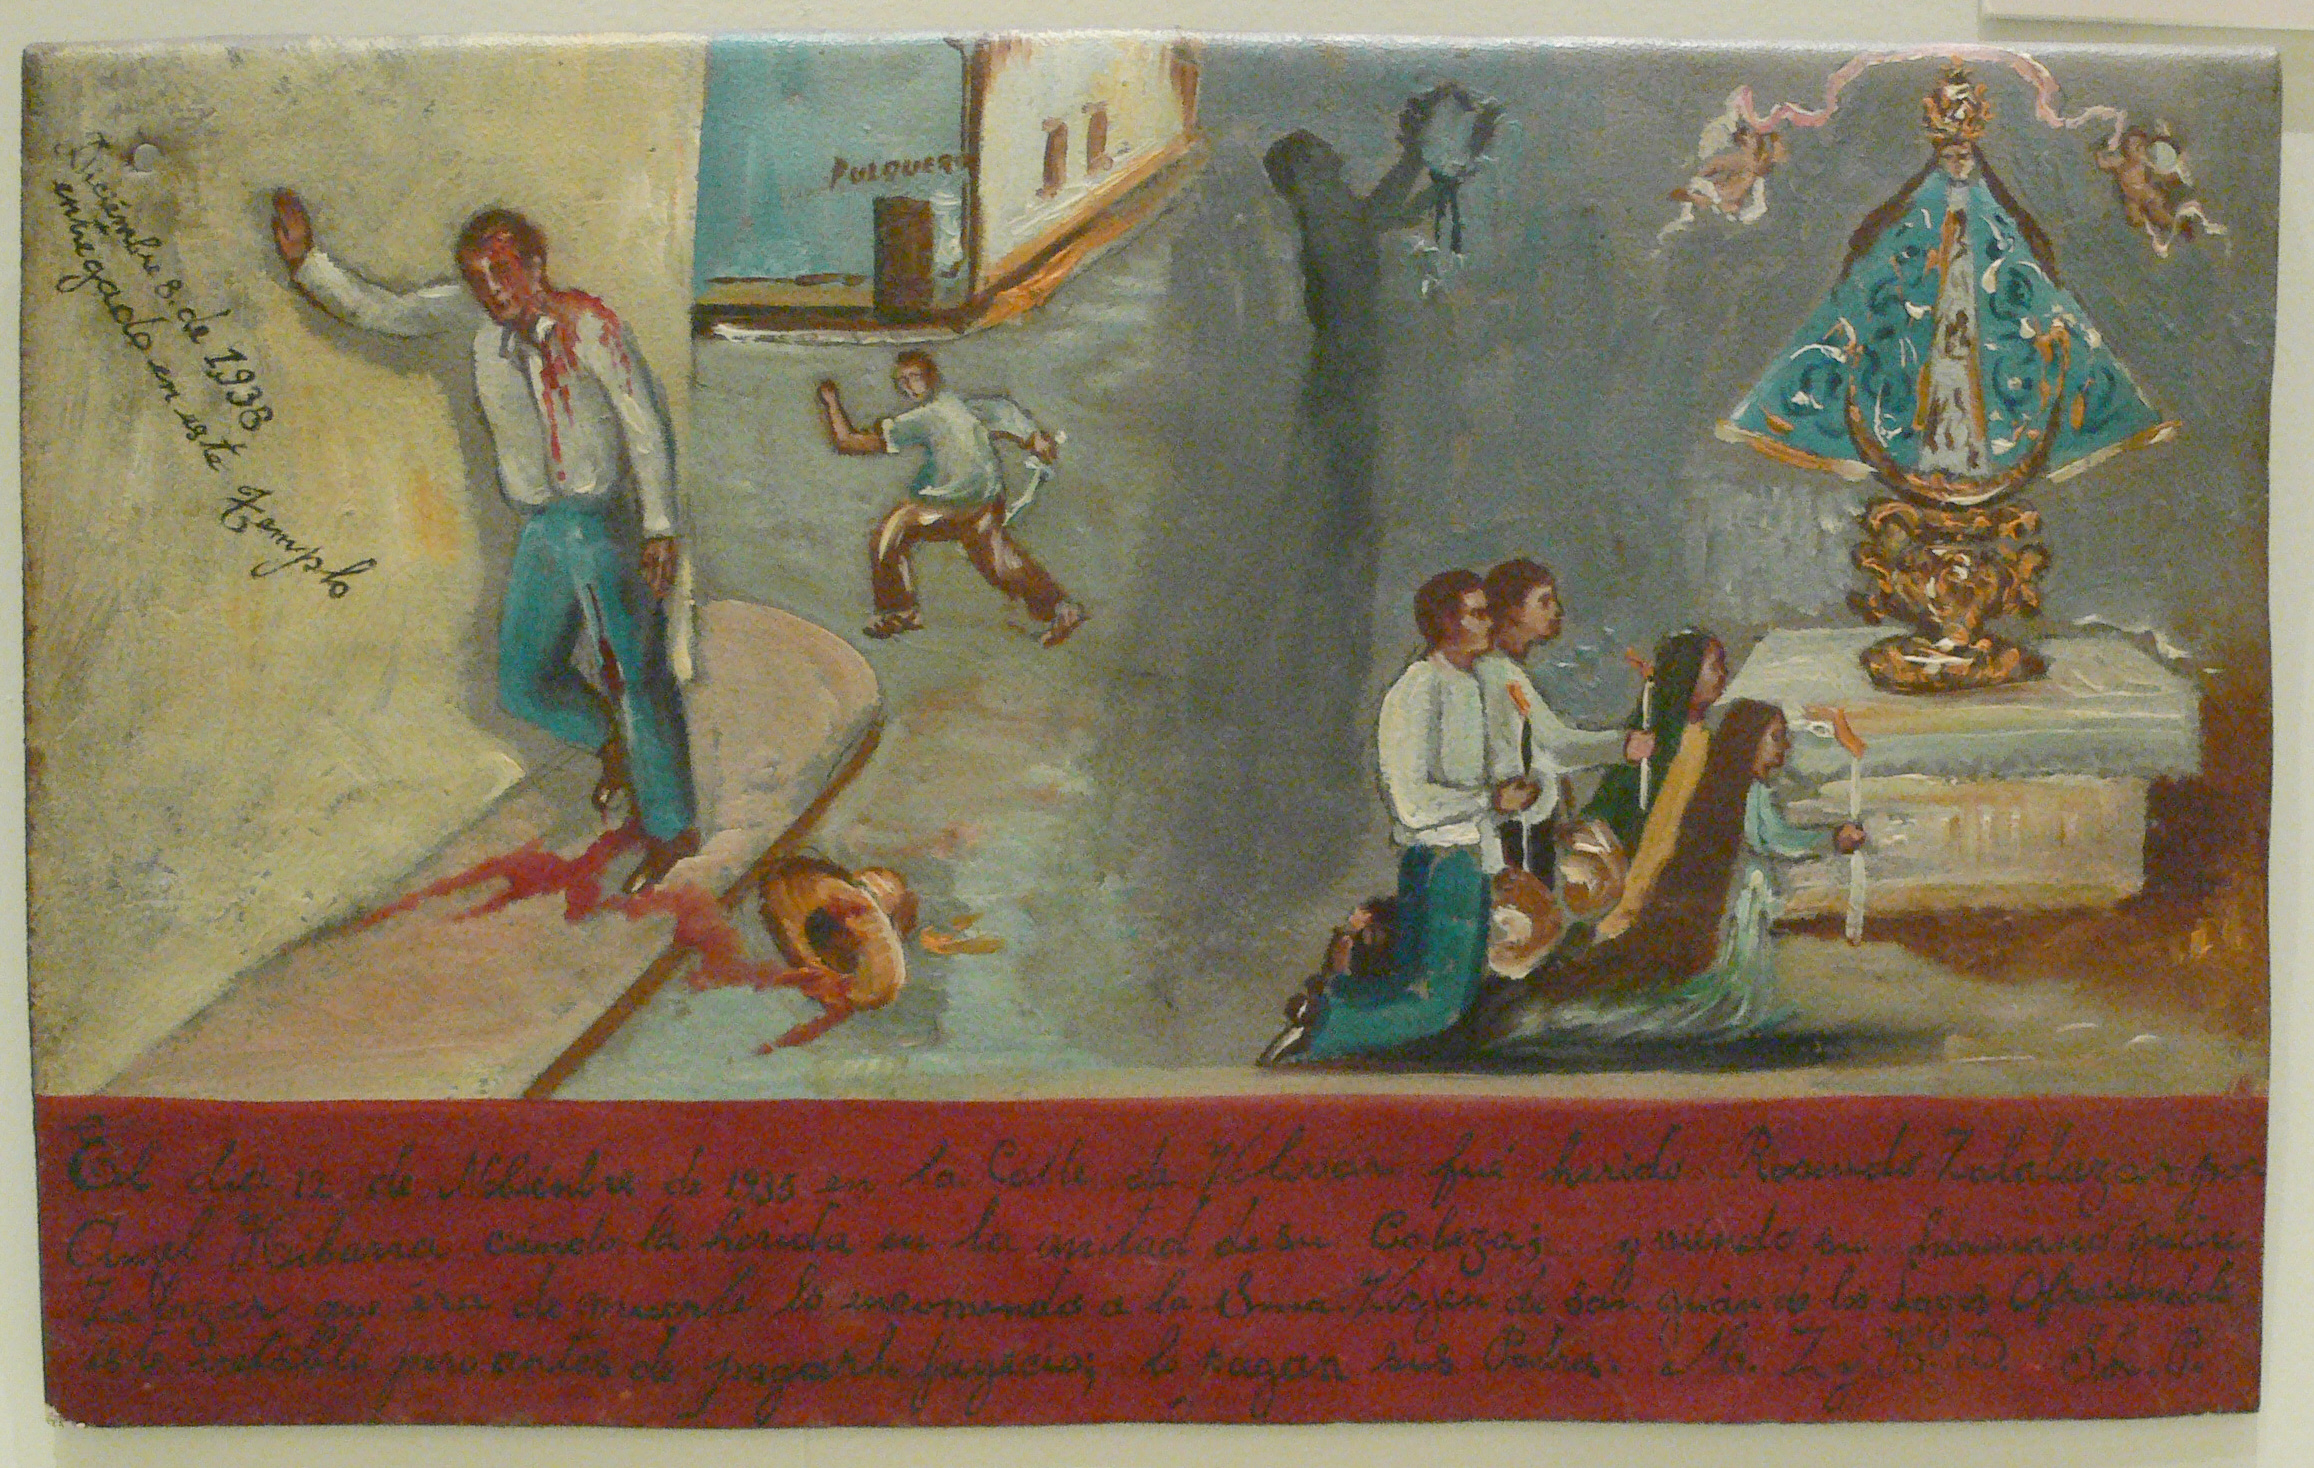 Diciémbre 8. de 1938
entregado en este Templo
PULQUERÍA
El día 12 de Nobiénbre de 1935 en la Calle de fué herido Rosendo Zalalazar por
Angel Hibarra ciendo la herida en la mitad de su Cabeza; y viéndo su hermano
Zalazar que éra de muerte lo encomendo a la Sma. Virjen de San Juán de los Lagos Ofresiendole
éste retablo pero antes de pagarlo fayecio; lo pagan sus Padres. M. Z y H. D. S. L. P.